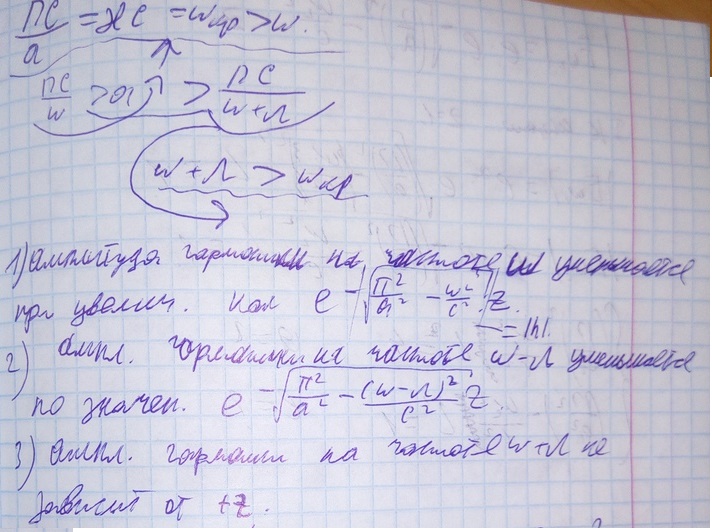 πc/a = ϰc = ω кр > ω.
πc/ω > a > πc/(ω+Ω)
ω + Ω > ω кр
1) амплитуда гармоники на частоте ω уменьшается
при увелич. как e^{-√(π²/a² - ω²/c²) z}
= |h|.
2) ампл. гармоники на частоте ω-Ω уменьшается
по значен. e^{-√(π²/a² - (ω-Ω)²/c²) z}.
3) ампл. гармоники на частоте ω+Ω не
зависит от +z.